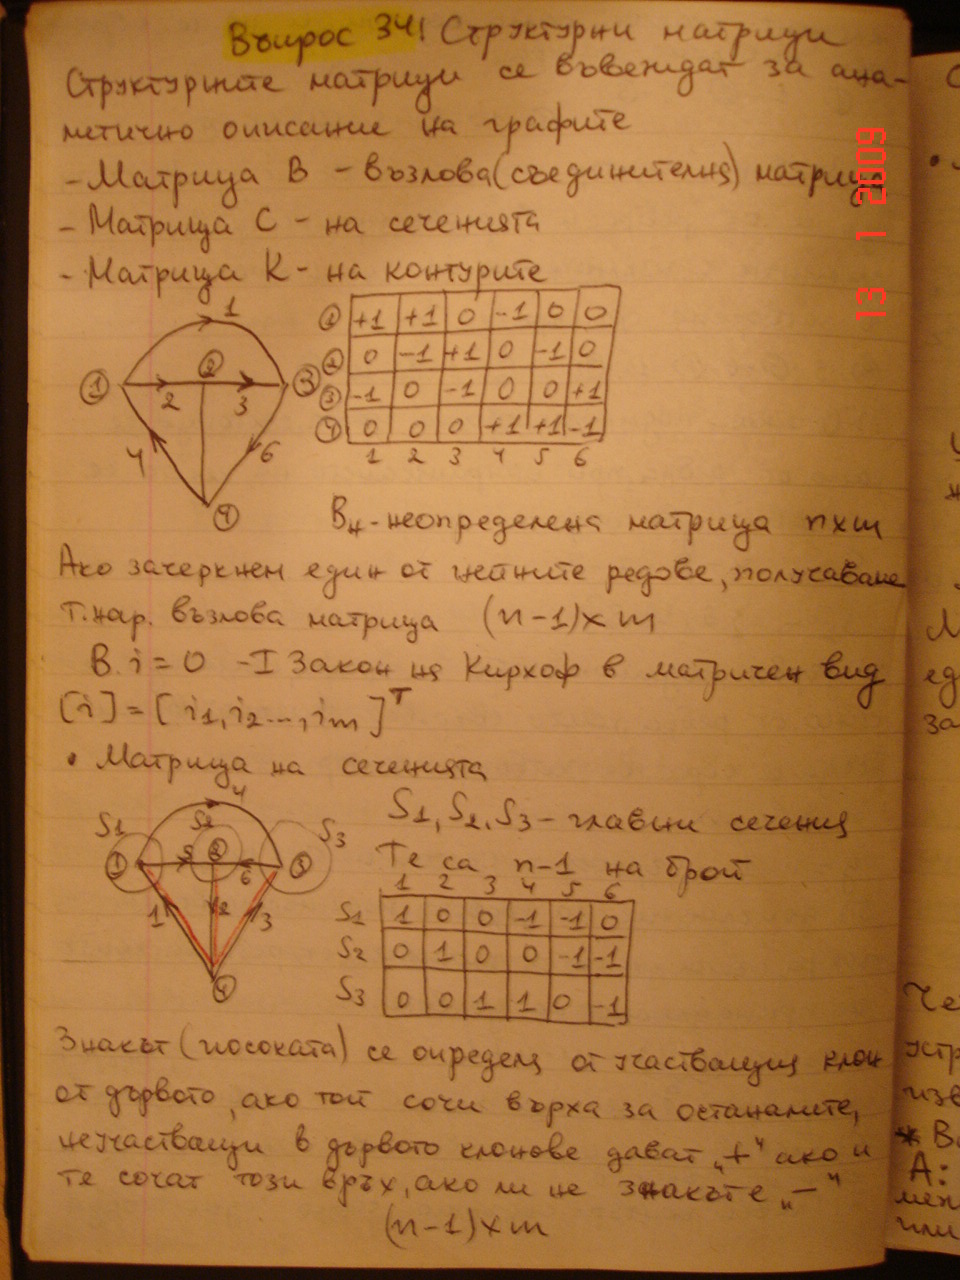 Въпрос 34! Структурни матрици
Структурните матрици се въвеждат за ана-
метично описание на графите
- Матрица B - възлова(съединителна) матрица
- Матрица C - на сеченията
- Матрица K - на контурите
1
① ② ③
2 3
4 6
④
① +1 +1 0 -1 0 0
② 0 -1 +1 0 -1 0
③ -1 0 -1 0 0 +1
④ 0 0 0 +1 +1 -1
1 2 3 4 5 6
Bн - неопределена матрица n x m
Ако зачеркнем един от нейните редове, получаваме
т.нар. възлова матрица (n-1) x m
B.i = 0 - I Закон на Кирхоф в матричен вид
[i] = [i1, i2 ..., im]T
• Матрица на сеченията
4
S1 S2 S3
① 5 ② 6 ③
1 2 3
④
S1, S2, S3 - главни сечения
Те са n-1 на брой
1 2 3 4 5 6
S1 1 0 0 -1 -1 0
S2 0 1 0 0 -1 -1
S3 0 0 1 1 0 -1
Знакът (посоката) се определя от участващия клон
от дървото, ако той сочи върха за останалите,
неучастващи в дървото клонове дават „+“ ако и
те сочат този връх, ако ли не знакът е „-“
(n-1) x m
13 1 2009